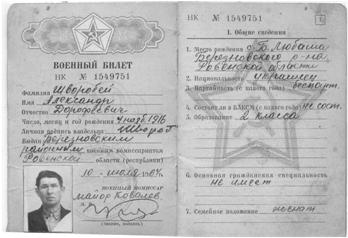 ВОЕННЫЙ БИЛЕТ
НК № 1549751
Фамилия Шворобей
Имя Александр
Отчество Дорофеевич
Число, месяц и год рождения 4 1916
Личная подпись владельца
Выдан Березновским
районным военным комиссариатом
Ровенской области (республики)
10 июля 1964 г.
ВОЕННЫЙ КОМИССАР
майор Ковалев
М. П.
НК № 1549751
1. Общие сведения
1. Место рождения с. Б. Любаша
Березновского р-на,
Ровенской области
2. Национальность украинец
3. Партийность (с какого года)
4. Состоял ли в ВЛКСМ (с какого года) не сост.
5. Образование 2 класса
6. Основная гражданская специальность
не имеет
7. Семейное положение женат